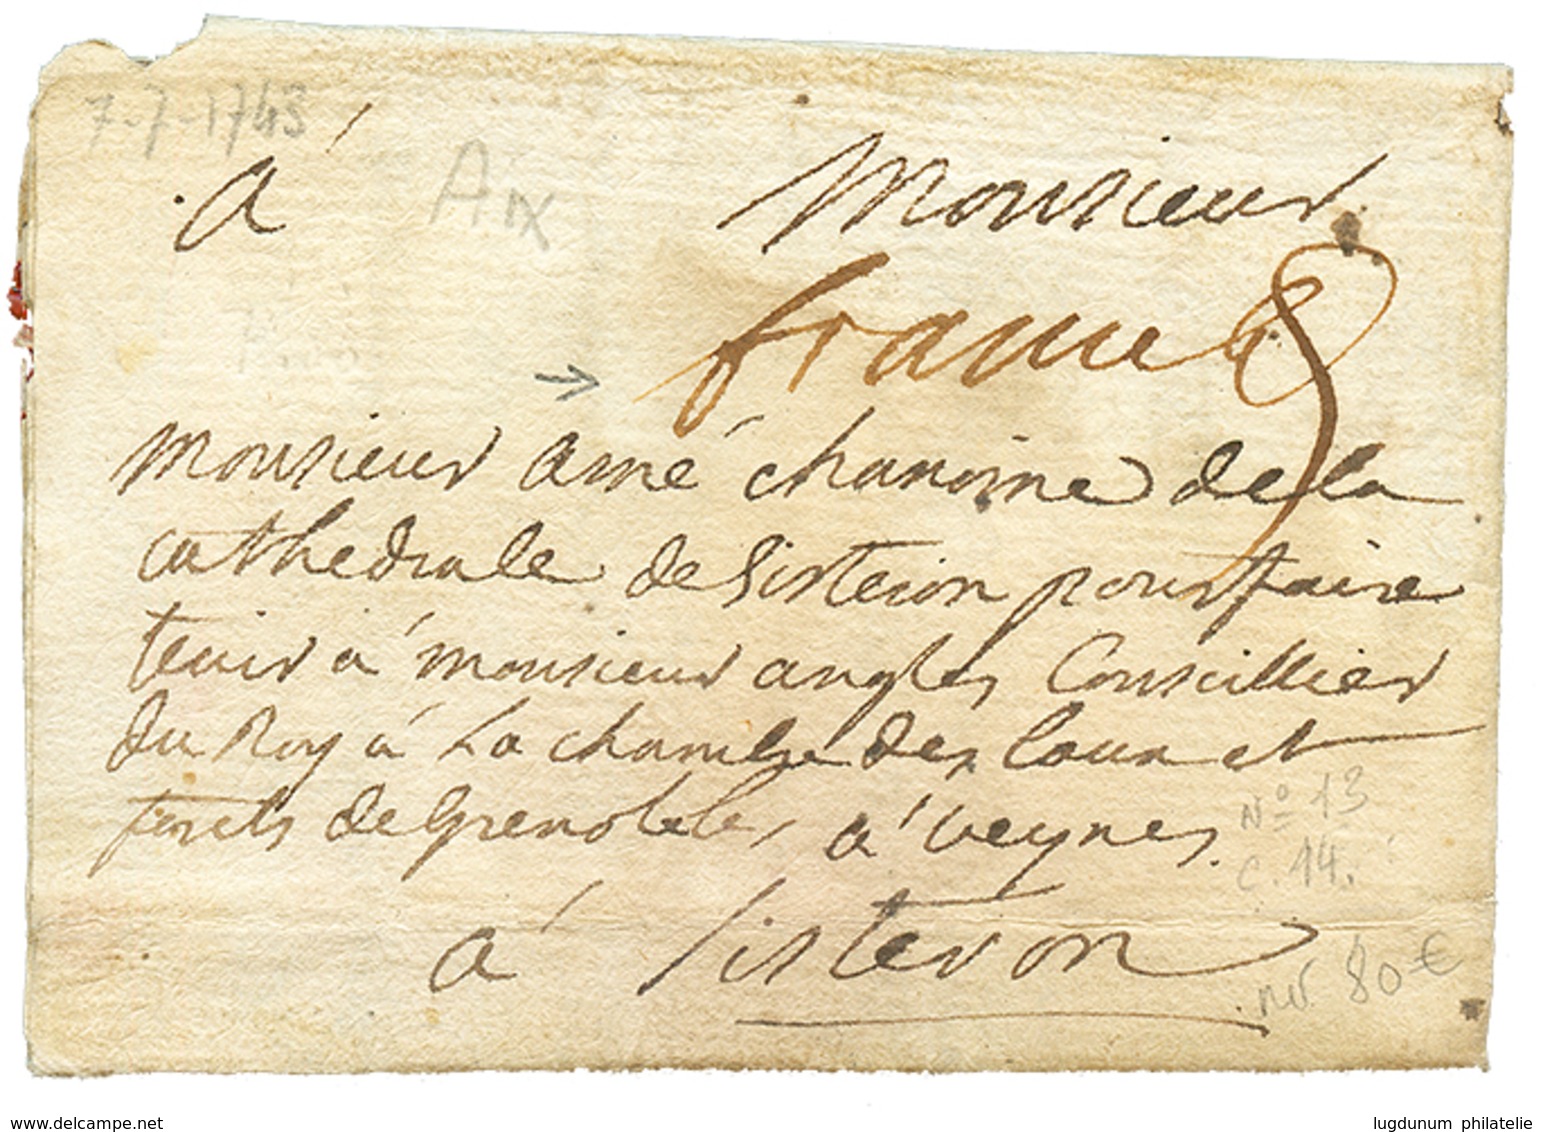 7-7-1743
Aix
a' Monsieur
franc
5
Monsieur amé chanoine de la
cathedrale de Sisteron pour faire
tenir a' monsieur angles Conseillier
du Roy a' La chambre des Eaux et
forets de grenoble, a' veynes.
a' Sisteron
N° 13
C. 14.
80 €
www.delcampe.net
lugdunum philatelie